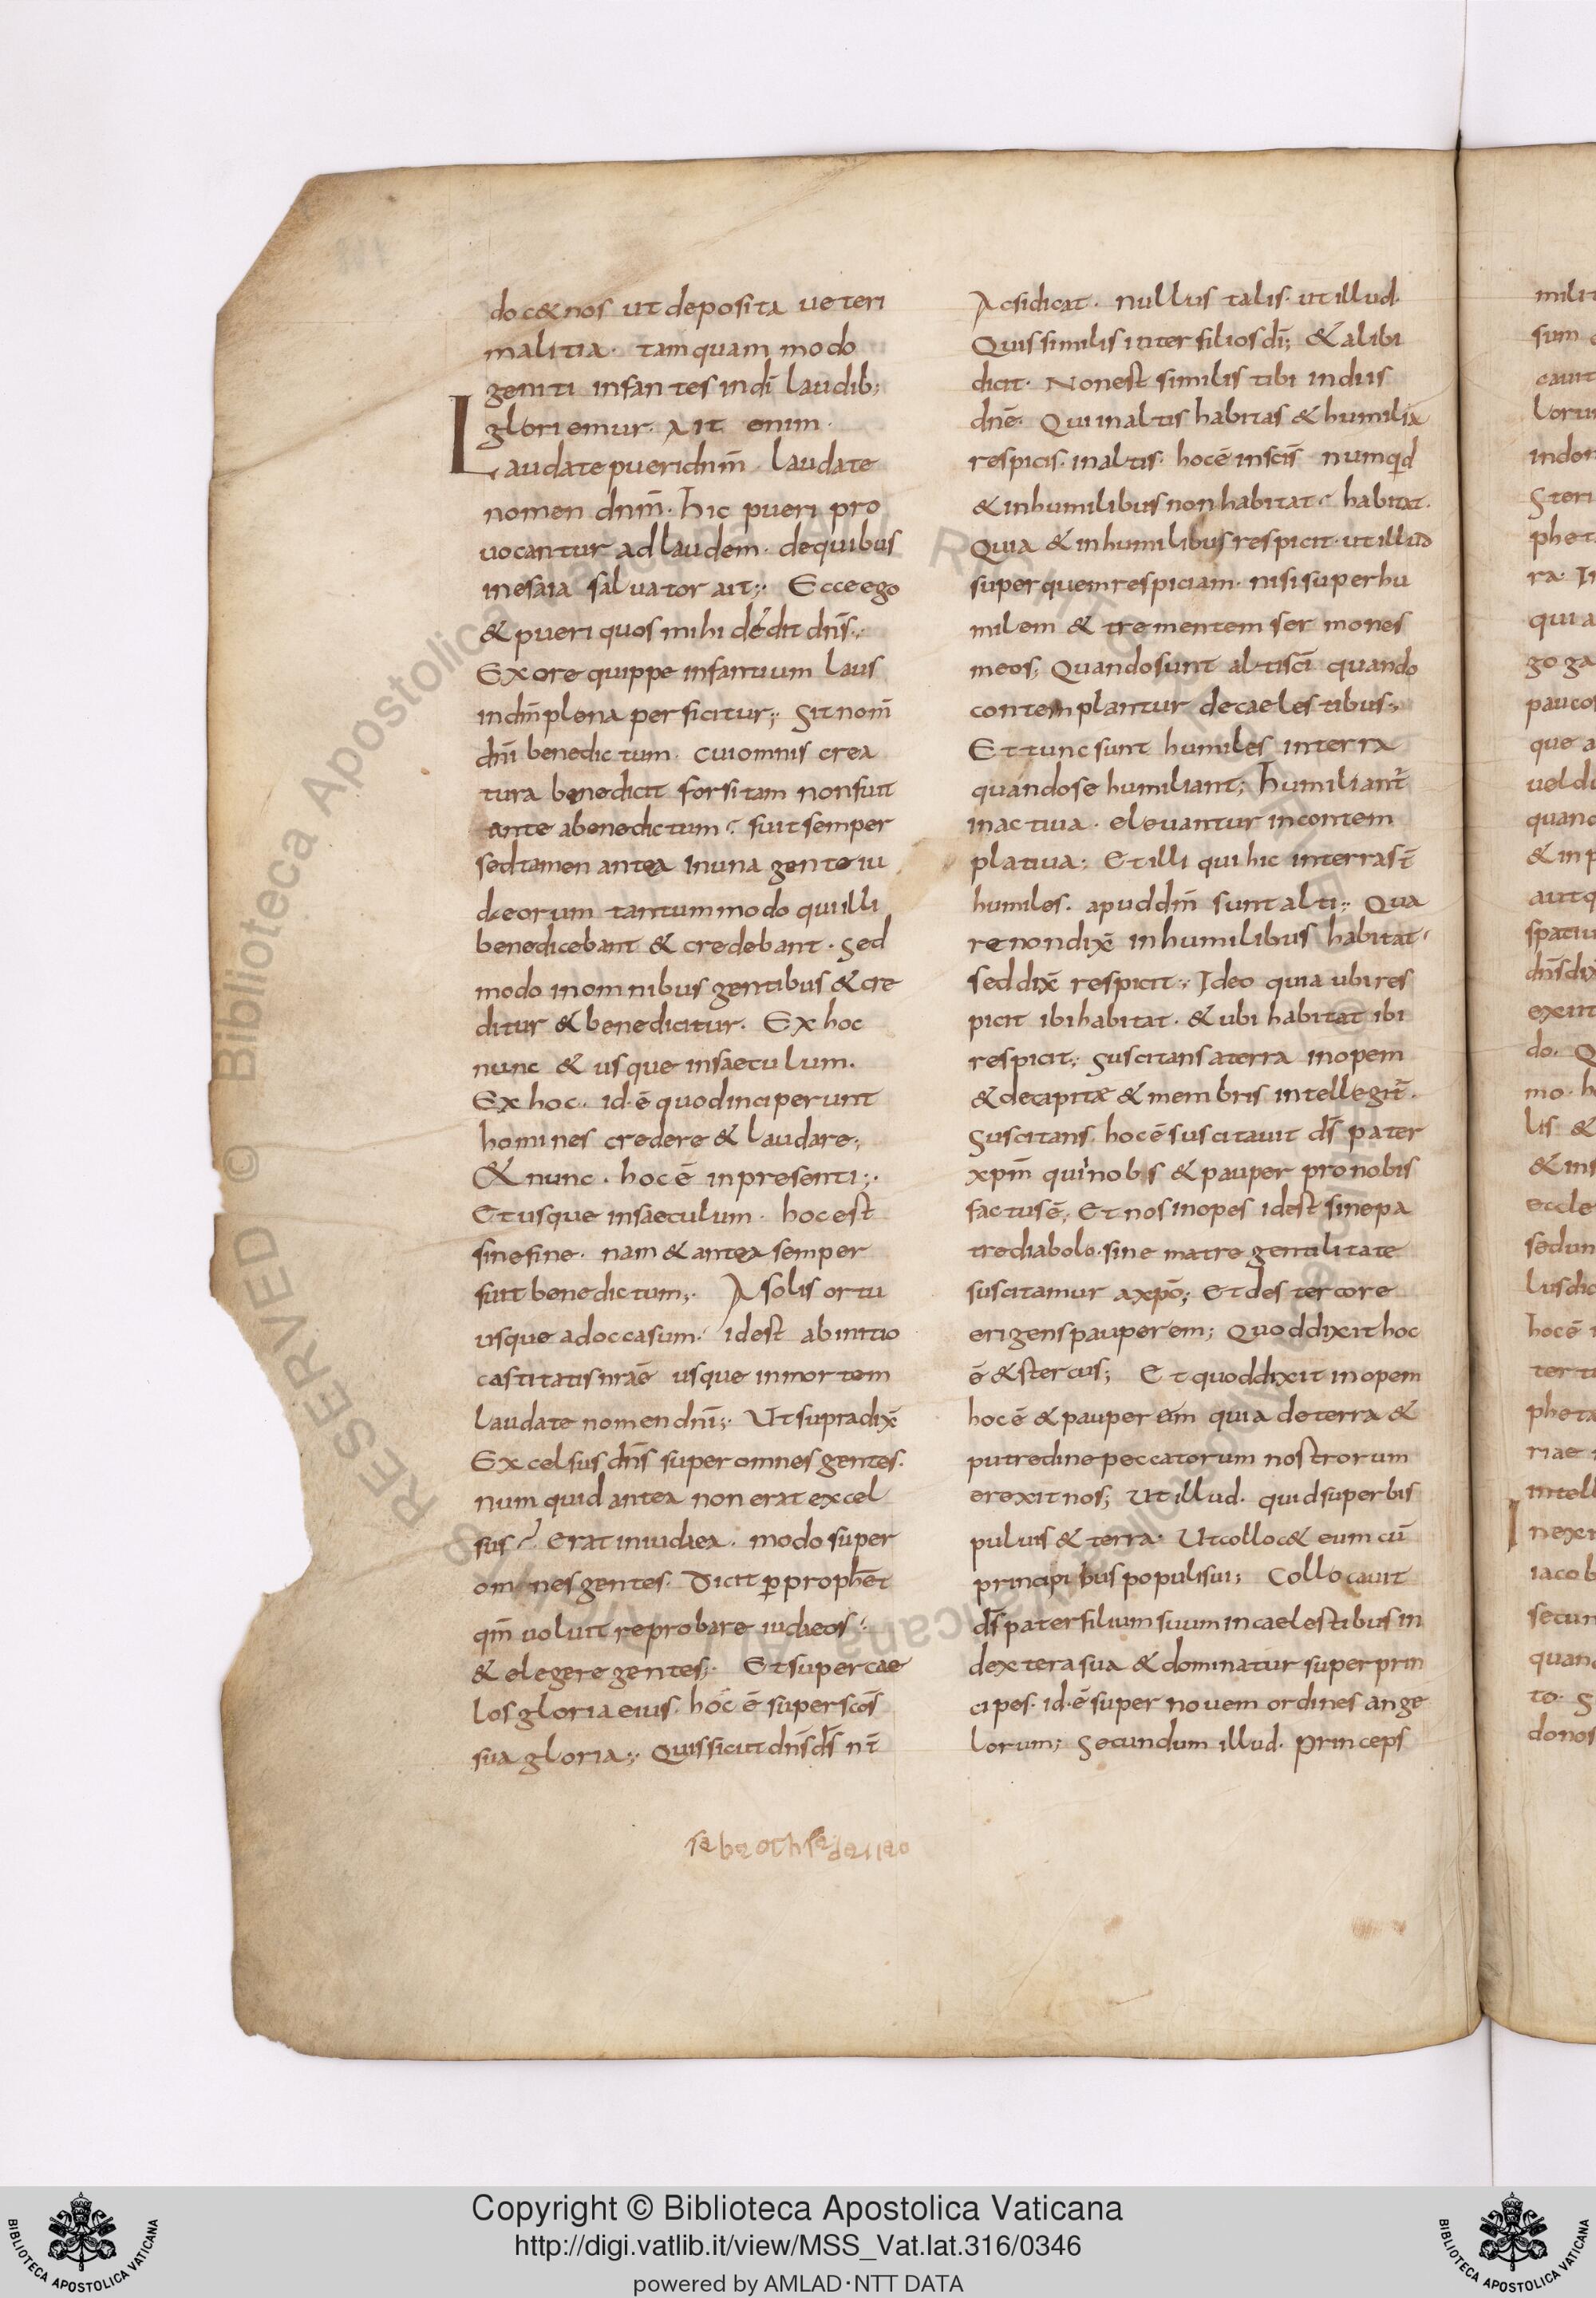 doc&nos ut deposita ueteri
malitia· tamquam modo
geniti infantes indi̅ laudib;
gloriemur· Ait enim·
Laudate pueri dnm̅ laudate
nomen dnm̅· hic pueri pro
uocantur ad laudem· dequibus
inesaia saluator ait;· Ecce ego
& pueri quos mihi dedit dns̅;·
Ex ore quippe infantium laus
indm̅ plena perficitur;· Sit nom̅
dni̅ benedictum· cui omnis crea
tura benedicit forsitam nonfuit
ante abenedictum? fuit semper
sed tamen antea inuna gente iu
deorum tantummodo qui illi
benedicebant & credebant· Sed
modo inomnibus gentibus & cre
ditur & benedicitur· Ex hoc
nunc & usque insaeculum·
Ex hoc· id·e̅ quod inciperunt
homines credere & laudare;
& nunc· hoc e̅ inpresenti;·
Et usque insaeculum· hoc est
sinefine· nam & antea semper
fuit benedictum;· A solis ortu
usque adoccasum· idest abinitio
castitatis nrae̅ usque inmortem
laudate nomen dni̅;· Ut supra dix̅
Excelsus dns̅ super omnes gentes·
numquid antea non erat excel
sus? erat iniudaea· modo super
omnes gentes· Dicit ꝑ prophet̅
qm̅ uoluit reprobare iudaeos·
& elegere gentes;· Et super cae
los gloria eius· hoc e̅ super scos̅
sua gloria;· Quis sicut dns̅ ds̅ nr̅
sabaoth sadaiiao
Acsidicat· nullus talis· ut illud·
Quis similis inter filios di̅; & alibi
dicit· Non est similis tibi indiis
dne̅· Qui inaltis habitas & humilia
respicis· inaltis· hoc e̅ inscis̅ numqd
& inhumilibus non habitat? habitat·
Quia & inhumilibus respicit· ut illud
super quem respiciam· nisi super hu
milem & trementem sermones
meos; Quando sunt alti sci̅ quando
contemplantur decaelestibus;·
Et tunc sunt humiles interra
quando se humiliant; humiliant̅
inactiua· eleuantur incontem
platiua; Et illi qui hic interra st̅
humiles· apud dm̅ sunt alti;· Qua
re non dix̅ inhumilibus habitat?
sed dix̅ respicit;· Ideo quia ubi res
picit ibi habitat· & ubi habitat ibi
respicit;· Suscitans aterra inopem
& decapitæ & membris intellegit̅·
Suscitans· hoc e̅ suscitauit ds̅ pater
xpm̅ qui inobs & pauper pro nobis
factus e̅; Et nos inopes idest sinepa
tre diabolo· sine matre gentilitate
suscitamur axpo̅; Et destercore
erigens pauperem; Quod dixit hoc
e̅ & stercus; Et quod dixit inopem
hoc e̅ & pauperem quia deterra &
putredine peccatorum nostrorum
erexit nos; Ut illud· quid superbis
puluis & terra· Ut colloc& eum cu̅
principibus populi sui; Collocauit
ds̅ pater filium suum in caelestibus in
dextera sua & dominatur super prin
cipes· id·e̅ super nouem ordines ange
lorum; Secundum illud· princeps
Copyright © Biblioteca Apostolica Vaticana
http://digi.vatlib.it/view/MSS_Vat.lat.316/0346
powered by AMLAD·NTT DATA
BIBLIOTECA APOSTOLICA VATICANA
BIBLIOTECA APOSTOLICA VATICANA